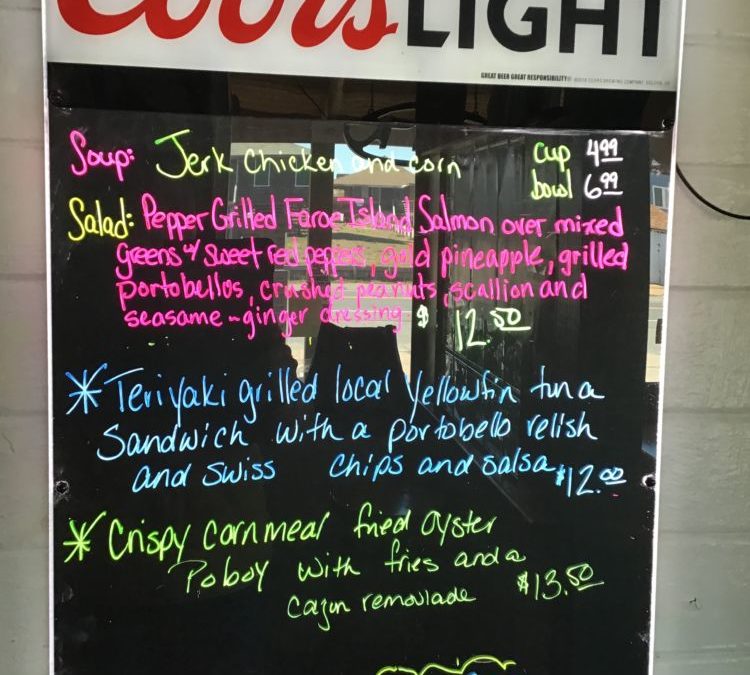 Coors LIGHT
GREAT BEER GREAT RESPONSIBILITY®
Soup: Jerk Chicken and corn cup 4.99
bowl 6.99
Salad: Pepper Grilled Faroe Island Salmon over mixed
greens w/ sweet red peppers, gold pineapple, grilled
portobellos, crushed peanuts, scallion and
seasame-ginger dressing $ 12.50
* Teriyaki grilled local Yellowfin tuna
Sandwich with a portobello relish
and Swiss chips and salsa $12.00
* Crispy cornmeal fried oyster
Poboy with fries and a
Cajun remoulade $13.50